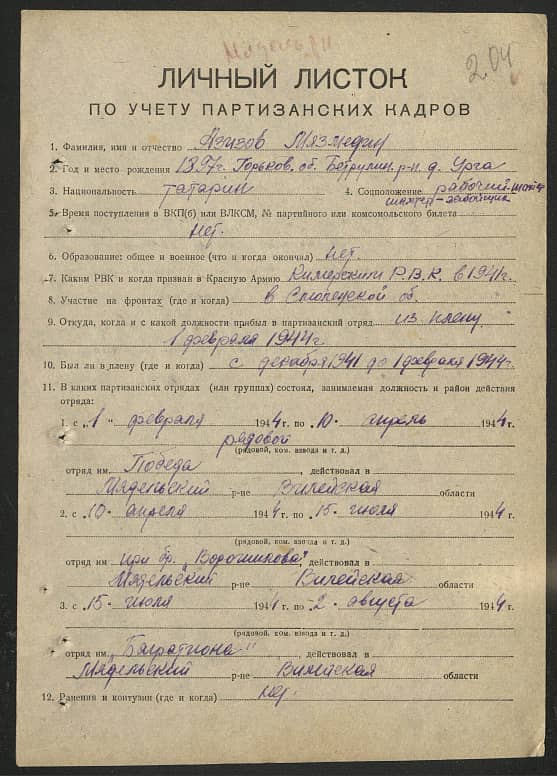 204
ЛИЧНЫЙ ЛИСТОК
ПО УЧЕТУ ПАРТИЗАНСКИХ КАДРОВ
1. Фамилия, имя и отчество Азизов Мязмедин
2. Год и место рождения 1897 г. Горьков. об. Бетрулин. р-н д. Урга
3. Национальность татарин 4. Соцположение рабочий
шахтер-забойщик
5. Время поступления в ВКП(б) или ВЛКСМ, № партийного или комсомольского билета
нет.
6. Образование: общее и военное (что и когда окончил) нет.
7. Каким РВК и когда призван в Красную Армию Кимерским Р.В.К. в 1941 г.
8. Участие на фронтах (где и когда) в Смоленской об.
9. Откуда, когда и с какой должности прибыл в партизанский отряд из плену
1 февраля 1944 г
10. Был ли в плену (где и когда) с декабря 1941 до 1 февраля 1944 г.
11. В каких партизанских отрядах (или группах) состоял, занимаемая должность и район действия
отряда:
1. с „1" февраля 1944 г. по 10. апрель 1944 г.
рядовой
(рядовой, ком. взвода и т. д.)
отряд им. Победа, действовал в
Мядельский р-не Вилейская области
2. с 10. апреля 1944 г. по 15. июля 1944 г.
(рядовой, ком. взвода и т. д.)
отряд им. при бр. „Ворошилова", действовал в
Мядельский р-не Вилейская области
3. с 15. июля 1944 г. по 2. августа 1944 г.
(рядовой, ком. взвода и т. д.)
отряд им. „Багратиона", действовал в
Мядельский р-не Вилейская области
12. Ранения и контузии (где и когда) нет.